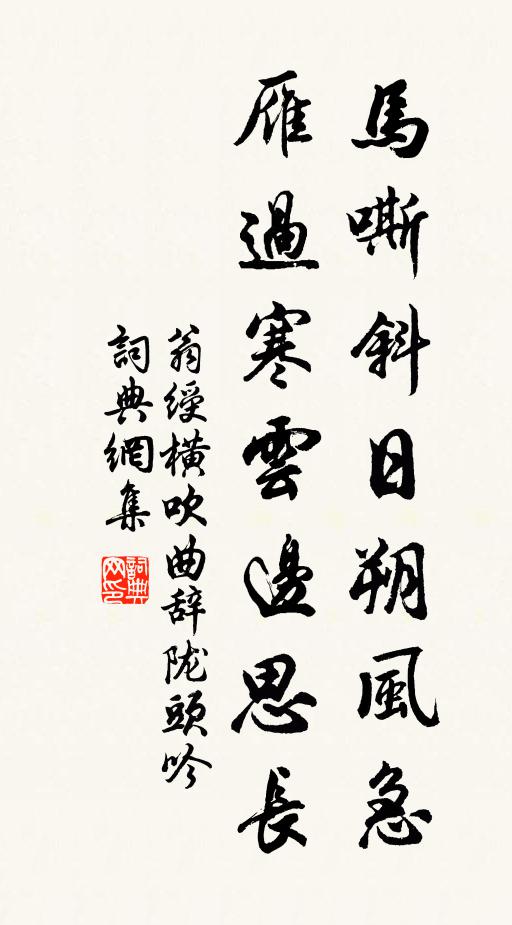 馬嘶斜日朔風急
雁過寒雲邊思長
翁綬橫吹曲辞陇頭吟
詞典網集
詞典网印